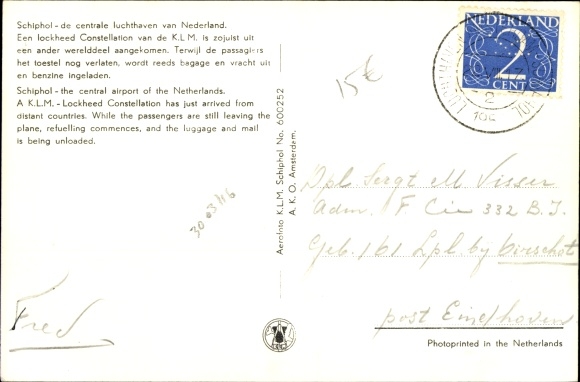 Schiphol - de centrale luchthaven van Nederland.
Een lockheed Constellation van de K.L.M. is zojuist uit
een ander werelddeel aangekomen. Terwijl de passagiers
het toestel nog verlaten, wordt reeds bagage en vracht uit
en benzine ingeladen.
Schiphol - the central airport of the Netherlands.
A K.L.M. - Lockheed Constellation has just arrived from
distant countries. While the passengers are still leaving the
plane, refuelling commences, and the luggage and mail
is being unloaded.
30 03/116
Fred.
AeroFoto K.L.M. Schiphol No. 600252
A. K. O. Amsterdam.
15€
NEDERLAND
2
CENT
Dpl. Sergt M Visser
Adm. F Cie 332 B.I.
Geb. 161 Lpl. by Oirschot
post Eindhoven
Photoprinted in the Netherlands